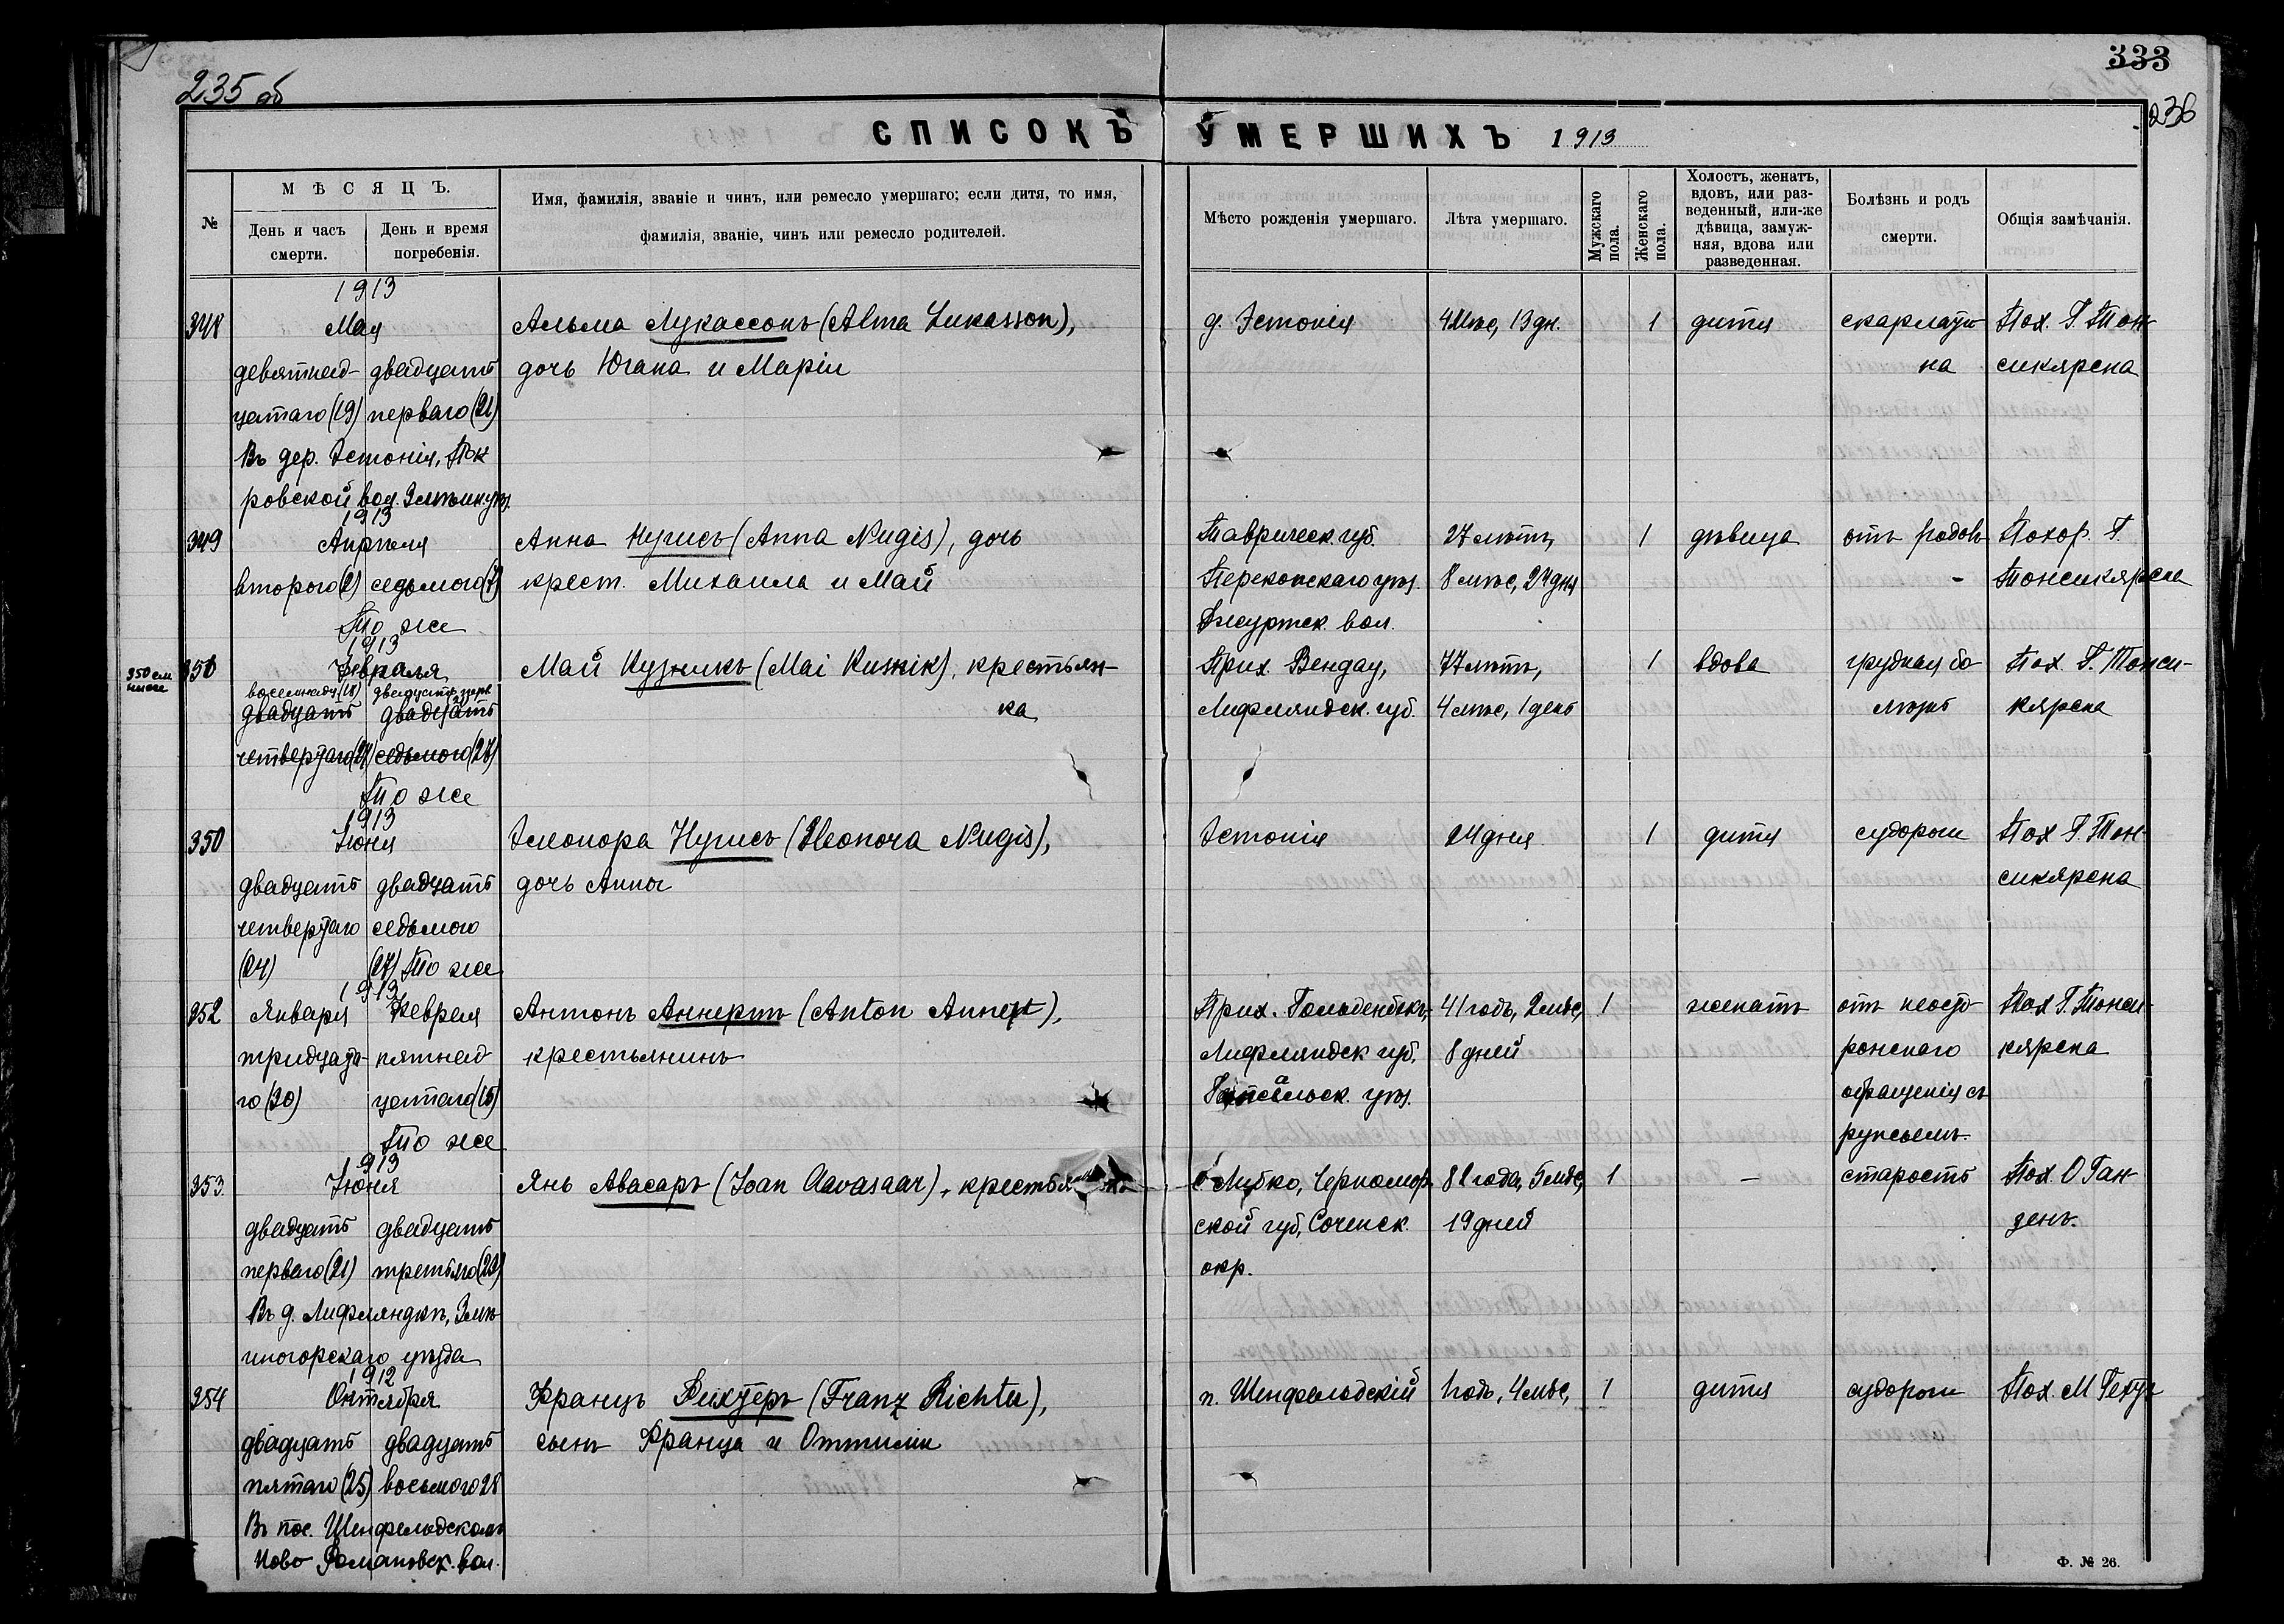 235 об
333
236
СПИСОКЪ УМЕРШИХЪ 1913
№
МѢСЯЦЪ.
День и часъ смерти.
День и время погребенія.
Имя, фамилія, званіе и чинъ, или ремесло умершаго; если дитя, то имя,
фамилія, званіе, чинъ или ремесло родителей.
Мѣсто рожденія умершаго.
Лѣта умершаго.
Мужскаго пола.
Женскаго пола.
Холостъ, женатъ,
вдовъ, или раз-
веденный, или-же
дѣвица, замуж-
няя, вдова или
разведенная.
Болѣзнь и родъ
смерти.
Общія замѣчанія.
1913
348 Мая Альма Лукассонъ (Alma Lukasson), д. Эстонія 4 мѣс, 13 дн. 1 дитя скарлати- Пох. Г. Тон-
девятнад- двадцать дочь Югана и Маріи на сикярена
цатаго (19) перваго (21)
Въ дер. Эстонія, Пок
ровской вол. Змѣиногуѣз.
1913
349 Апрѣля Анна Нугисъ (Anna Nugis), дочь Таврическ. губ. 27 лѣтъ, 1 дѣвица отъ родовъ Похор. Г.
второго (2) седьмого (7) крест. Михаила и Май Перекопскаго уѣз. 8 мѣс, 24 дня Тонсикярена
То же вол.
1913
350 см ниже
350 Февраля Май Кузникъ (Mai Kusnik), крестьян- Прих. Вендау, 77 лѣтъ, 1 вдова грудная бо Пох. Г. Тонси-
восемнадц (18) двадцать
двадцать двадцать ка Лифляндск. губ. 4 мѣс, 1 день лѣзнь кярена
четвертаго (24) седьмого (27)
То же
1913
350 Іюня Элеонора Нугисъ (Eleonora Nugis), Эстонія 24 дня 1 дитя судороги Пох Г. Тон-
двадцать двадцать дочь Анны сикярена
четвертаго седьмого
(24) (27) То же
1913
352 Января Февраля Антонъ Аннертъ (Anton Annert), Прих. 41 годъ, 2 мѣс, 1 женатъ отъ неосто- Пох Г. Тонси-
тридцата- пятнад- крестьянинъ Лифляндск губ, 8 дней рожнаго кярена
го (30) цатаго (15) уѣз. обращенія съ
То же ружьемъ.
1913
353. Іюня Янъ Авасаръ (Joan Aavasaar), с. Лубко, Черномор 81 года, 5 мѣс, 1 – старость Пох. О Ган-
двадцать двадцать ской губ, Сочинск. 19 дней зенъ.
перваго (21) третьяго (23) окр.
Въ д. Лифляндкѣ, Змѣи
ногорскаго уѣзда
1912
354 Октября Францъ Рихтеръ (Franz Richter), п. Шенфельдскій 1 годъ, 4 мѣс, 1 дитя судороги Пох. М
двадцать двадцать сынъ Франца и Оттиліи
пятаго (25) восьмого 28
Въ пос. Шенфельдскомъ
Ново Романовск. вол.
Ф. № 26.